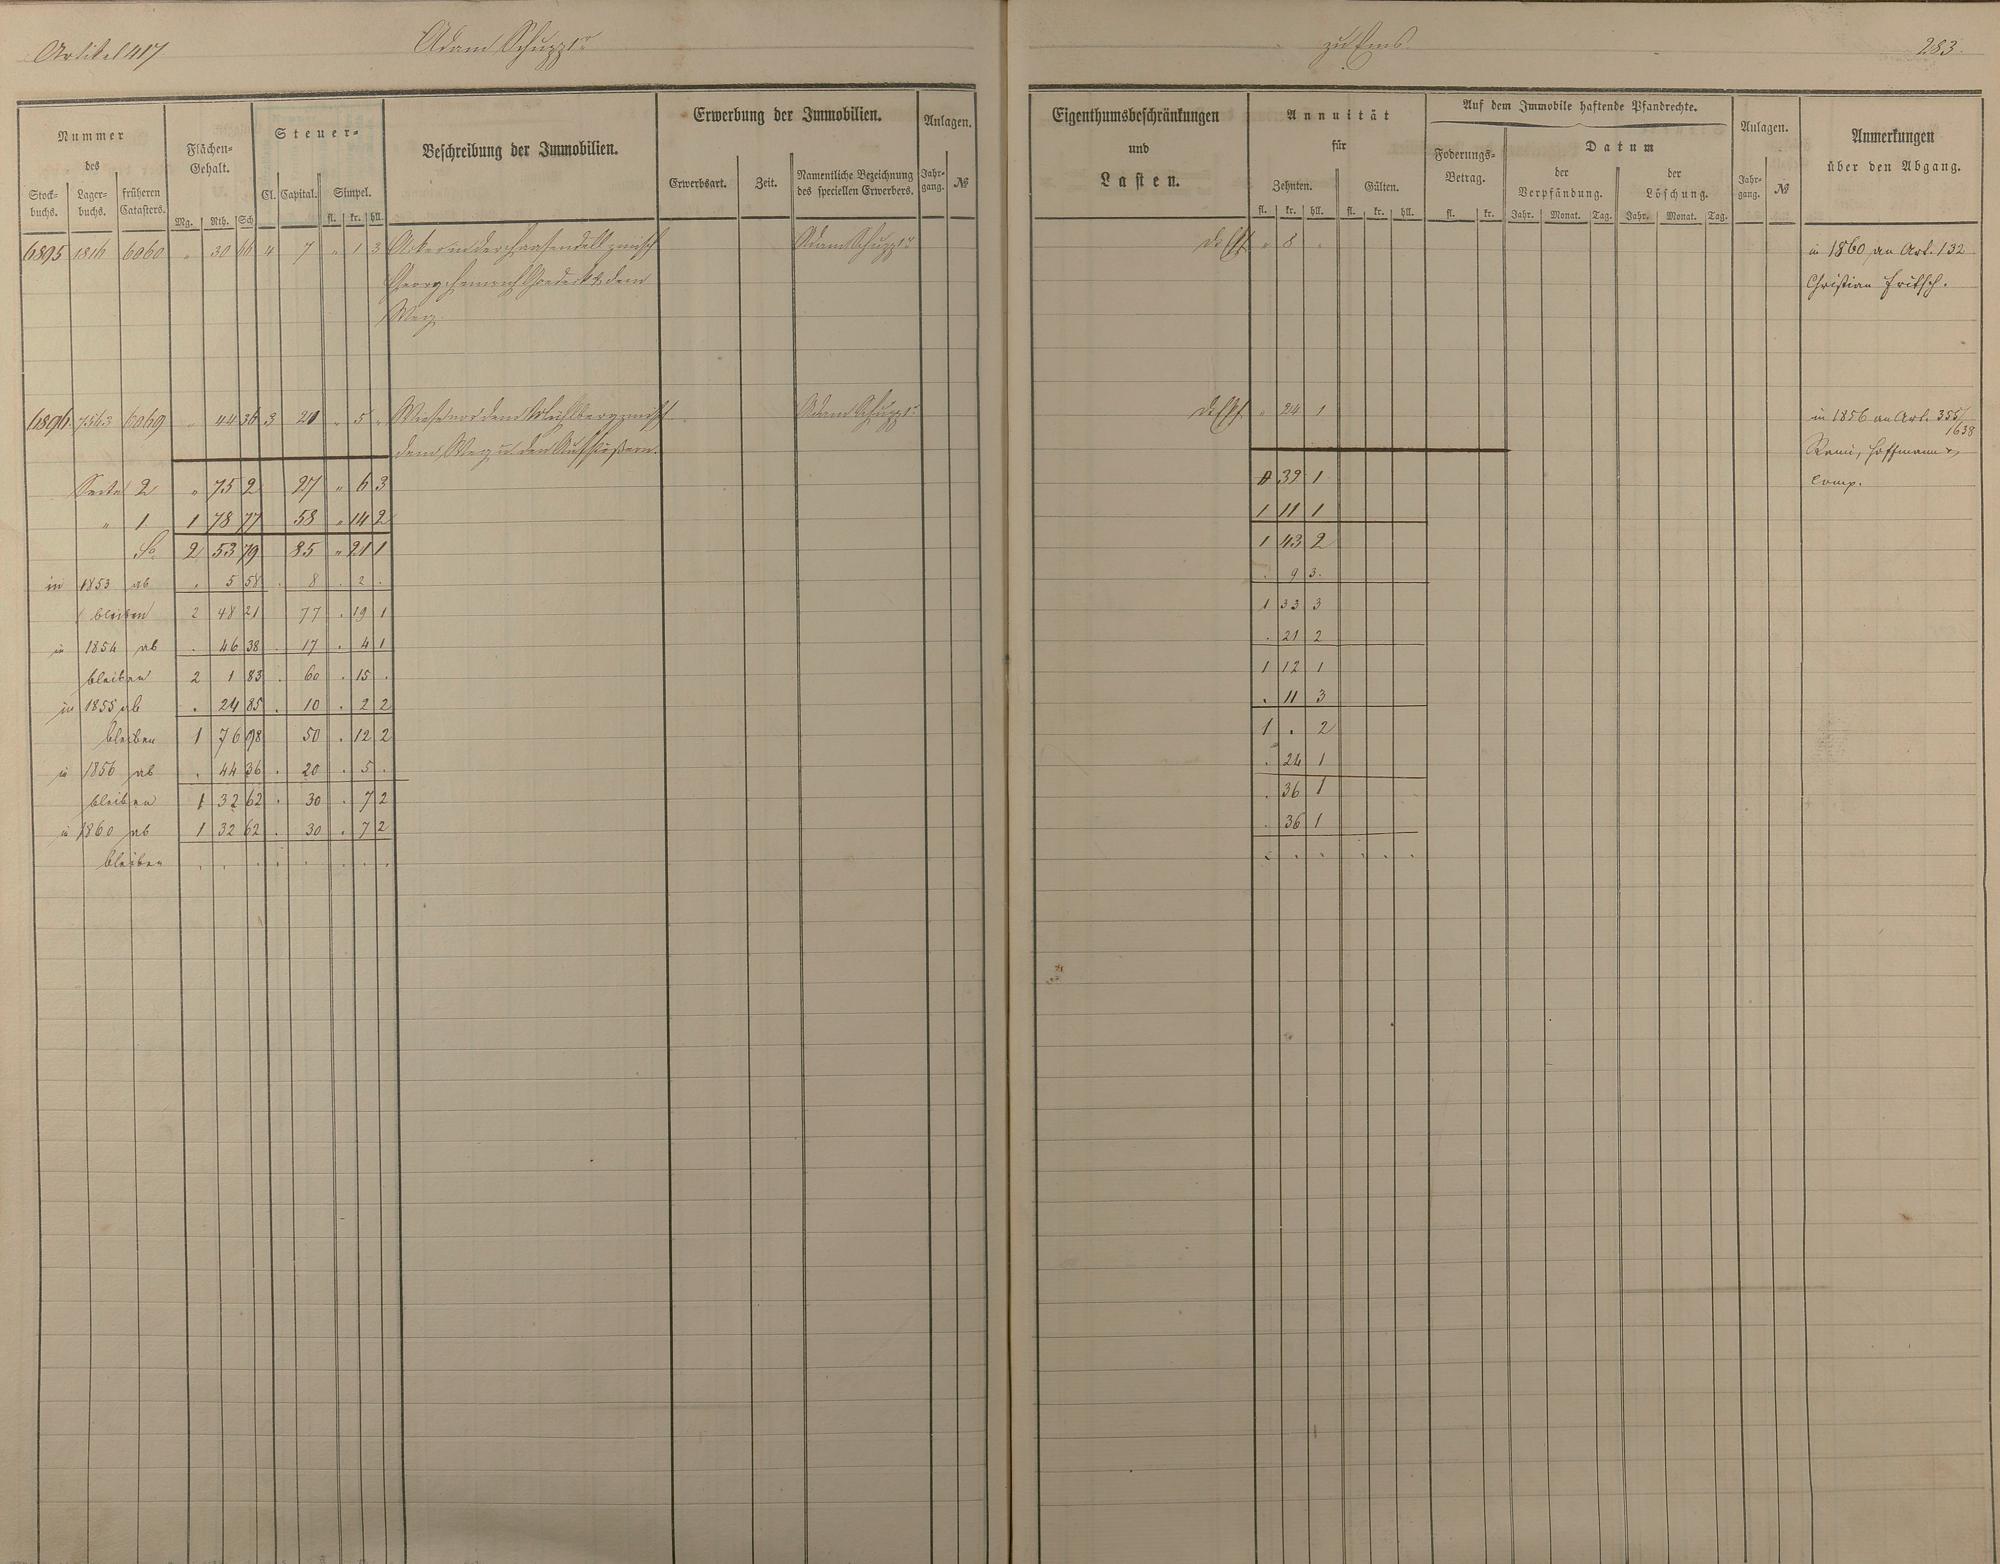 Artikel 417 Adam Schupp 1r zu Ems. 283.
Nummer
des
Stock-
buchs.
Lager-
buchs.
früheren
Catasters.
Flächen-
Gehalt.
Mg. Rth. Sch
Steuer-
Cl. Capital. Simpel.
fl. kr. hll.
Beschreibung der Immobilien.
Erwerbung der Immobilien.
Erwerbsart. Zeit. Namentliche Bezeichnung
des speciellen Erwerbers.
Anlagen.
Jahr-
gang. №
Eigenthumsbeschränkungen
und
Lasten.
Annuität
für
Zehnten. Gülten.
fl. kr. hll. fl. kr. hll.
Auf dem Immobile haftende Pfandrechte.
Foderungs-
Betrag.
fl. kr.
Datum
der
Verpfändung.
der
Löschung.
Jahr. Monat. Tag. Jahr. Monat. Tag.
Anlagen.
Jahr-
gang. №
Anmerkungen
über den Abgang.
6895 1816 6060 " 30 66 4 7 " 1 3 Acker in der zwisch Adam Schupp 1r " 8 " in 1860 an Art. 132
Georg Heinrich dem Christian Fritsch.
Weg.
6896 7563 6069 " 44 36 3 20 " 5 " Wiese vor dem zwisch Adam Schupp 1r " 24 1 in 1856 an Art. 355/1638
dem Weg u den Aufstößern. Hoffmann &
Seite 2 " 75 2 27 " 6 3 39 1 Comp.
" 1 1 78 77 58 " 14 2 1 11 1
Sa 2 53 79 85 " 21 1 1 43 2
in 1853 ab . 5 58 . 8 . 2 . . 9 3.
bleiben 2 48 21 77 . 19 1 1 33 3
in 1854 ab . 46 38 . 17 . 4 1 . 21 2
bleiben 2 1 83 . 60 . 15 . 1 12 1
in 1855 ab . 24 85 . 10 . 2 2 . 11 3
bleiben 1 76 98 50 . 12 2 1 . 2
in 1856 ab . 44 36 . 20 . 5 . . 24 1
bleiben 1 32 62 . 30 . 7 2 . 36 1
in 1860 ab 1 32 62 . 30 . 7 2 . 36 1
bleiben . . . . . . . . . . . . . .